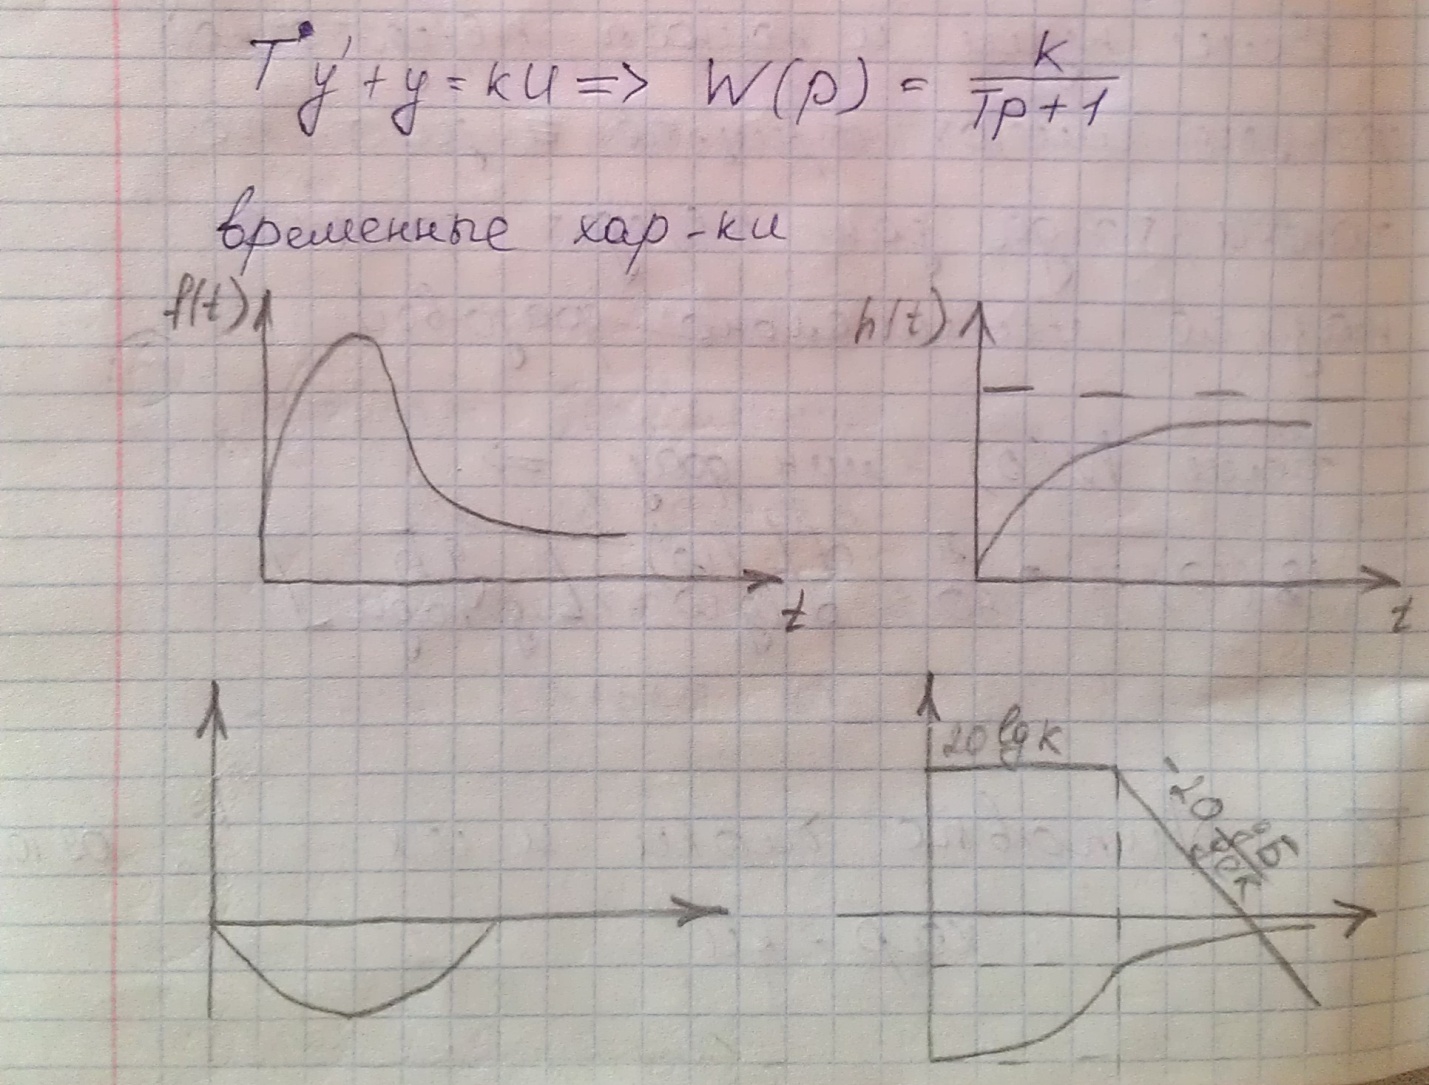 Ty' + y = ku => W(p) = k / (Tp + 1)
временные хар-ки
f(t)
h(t)
t
t
20 lg k
-20 дБ/дек